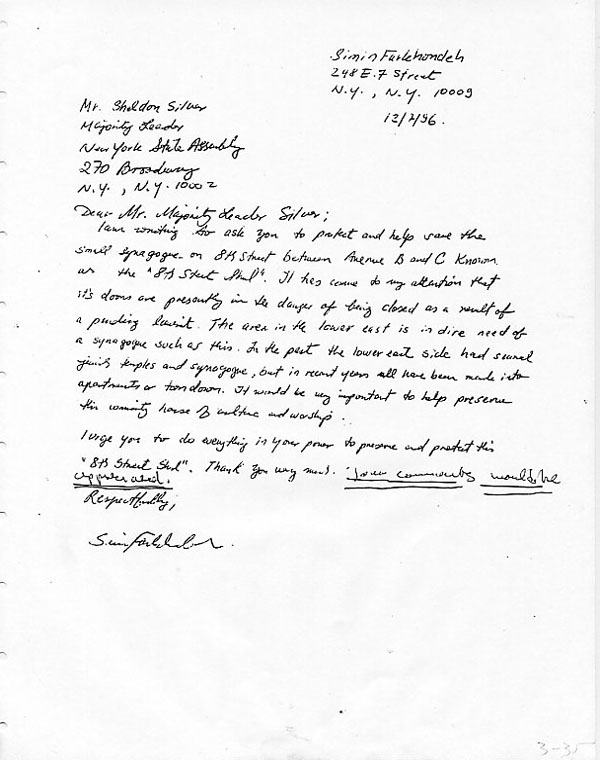 Simin Farkhondeh
248 E. 7 Street
N.Y., N.Y. 10009
12/2/96.
Mr. Sheldon Silver
Majority Leader
New York State Assembly
270 Broadway
N.Y., N.Y. 10002
Dear Mr. Majority Leader Silver;
I am writing to ask you to protect and help save the
small synagogue on 8th Street between Avenue B and C Known
as the "8th Street Shul". It has come to my attention that
it's doors are presently in the danger of being closed as a result of
a pending lawsuit. The area in the lower east is in dire need of
a synagogue such as this. In the past the lower east side had several
jewish temples and synagogue, but in recent years all have been made into
apartments or torn down. It would be very important to help preserve
this comunity house of culture and worship.
I urge you to do everything in your power to preserve and protect this
"8th Street Shul". Thank you very much. Your comments would be
appreciated.
Respectfully,
Simin Farkhondeh
3-35